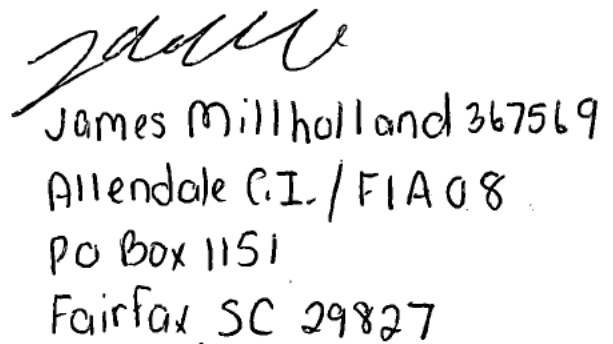 James Millholland 367569
Allendale C.I./F1A08
PO Box 1151
Fairfax SC 29827